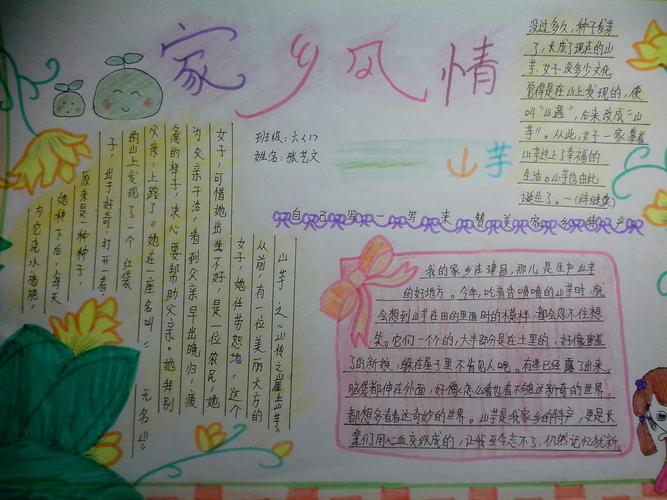 家乡风情
班级:六(1)
姓名:张艺文
山芋
自己写一写来赞美家乡特产
山芋之《山传之崖上山芋》
从前,有一位美丽大方的
女子,她任劳怨地,这个
女子,可惜她出生不好,是一位农民,她
为父亲干活,看到父亲早出晚归,疲
惫的样子,决心要帮助父亲。她特别
父亲,上路了。她在一座名叫《无名山》
的山上发现了一个红袋
子,出于好奇,打开一看,
原来是一种种子,
她种下后,每天
为它浇水施肥,
没过多久,种子发芽
了,长成了现在的山
芋,女子没多少文化,
觉得是在山上发现的,便
叫“山遇”,后来改成“山
芋”。从此,女子一家靠着
山芋过上了幸福的
生活。山芋也由此
诞生了。—(待继续)
我的家乡在建昌,那儿是生产山芋
的好地方。今年,吃着香喷喷的山芋时,就
会想到山芋在田的里面时的模样,都会忍不住想
笑。它们一个个的,大半部分是在土里的,好像害羞
了的新娘,躲在屋子里不肯见人呢。有些已经露了出来,
脑袋都伸在外面,好像怎么看也看不够这新奇的世界,
都想多看看这奇妙的世界。山芋是我家乡的特产,更是长
辈们用心血交织成的,让我至今忘不了,仍然记忆犹新。